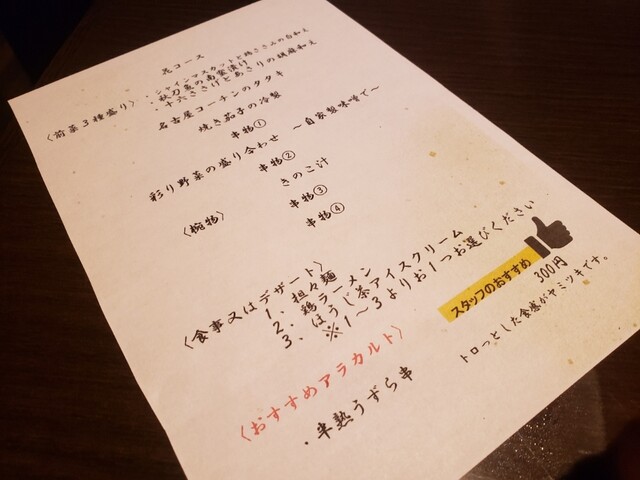 花コース
〈前菜3種盛り〉・シャインマスカットと焼きささみの白和え
・秋刀魚の南蛮漬け
・十六ささげとあさりの胡麻和え
名古屋コーチンのタタキ
焼き茄子の冷製
串物①
彩り野菜の盛り合わせ ～自家製味噌で～
串物②
〈椀物〉 きのこ汁
串物③
串物④
〈食事又はデザート〉
1、担々麺
2、鶏ラーメン
3、ほうじ茶アイスクリーム
※1～3よりお1つお選びください
〈おすすめアラカルト〉
スタッフのおすすめ
・半熟うずら串 300円
トロっとした食感がヤミツキです。